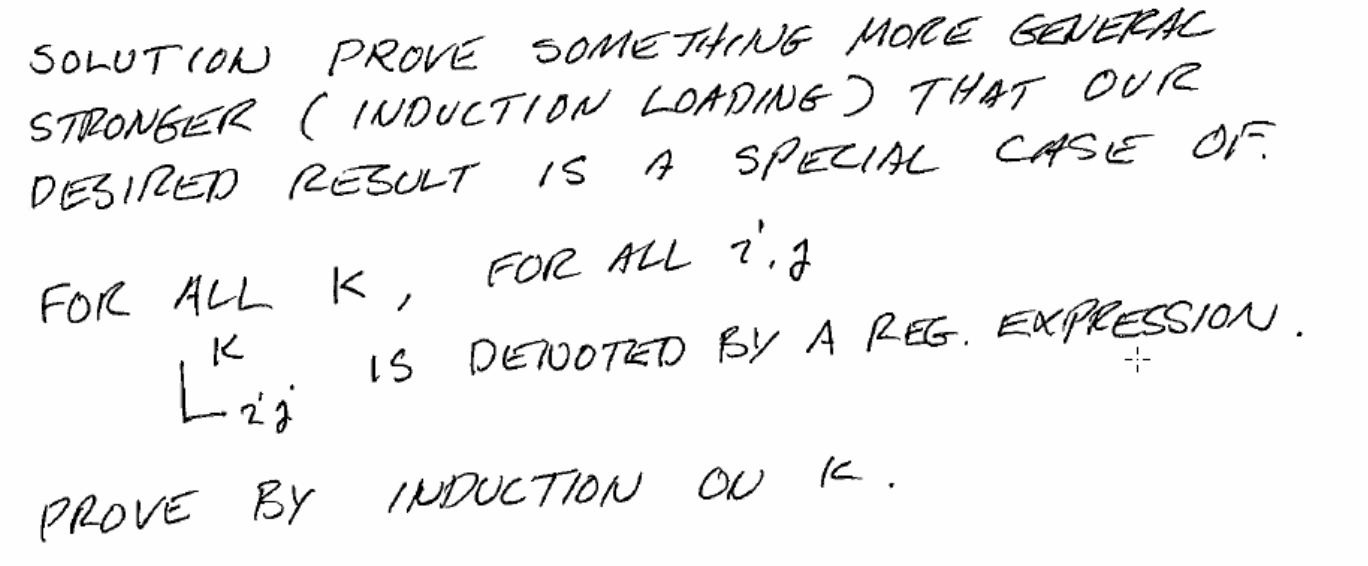 SOLUTION PROVE SOMETHING MORE GENERAL
STRONGER (INDUCTION LOADING) THAT OUR
DESIRED RESULT IS A SPECIAL CASE OF.
FOR ALL K, FOR ALL i, j
L^K_ij IS DENOTED BY A REG. EXPRESSION.
PROVE BY INDUCTION ON K.